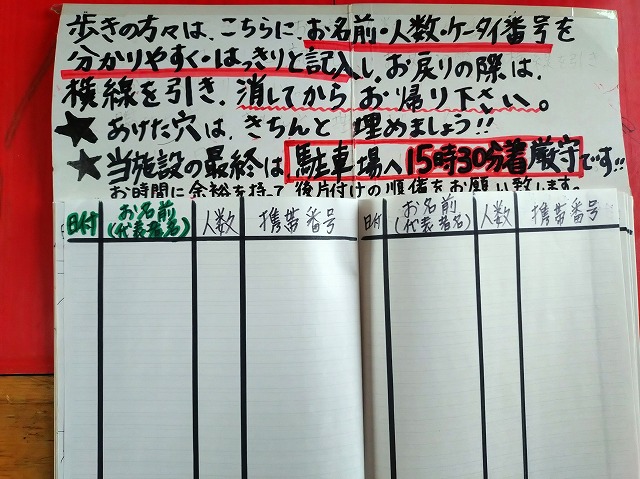 歩きの方々は、こちらに、お名前・人数・ケータイ番号を
分かりやすく・はっきりと記入し、お戻りの際は、
横線を引き、消してからお帰り下さい。
★あけた穴は、きちんと埋めましょう!!
★当施設の最終は駐車場へ15時30分着厳守です!!
お時間に余裕を持て後片付けの準備をお願い致します。
日付 お名前(代表者名) 人数 携帯番号 日付 お名前(代表者名) 人数 携帯番号